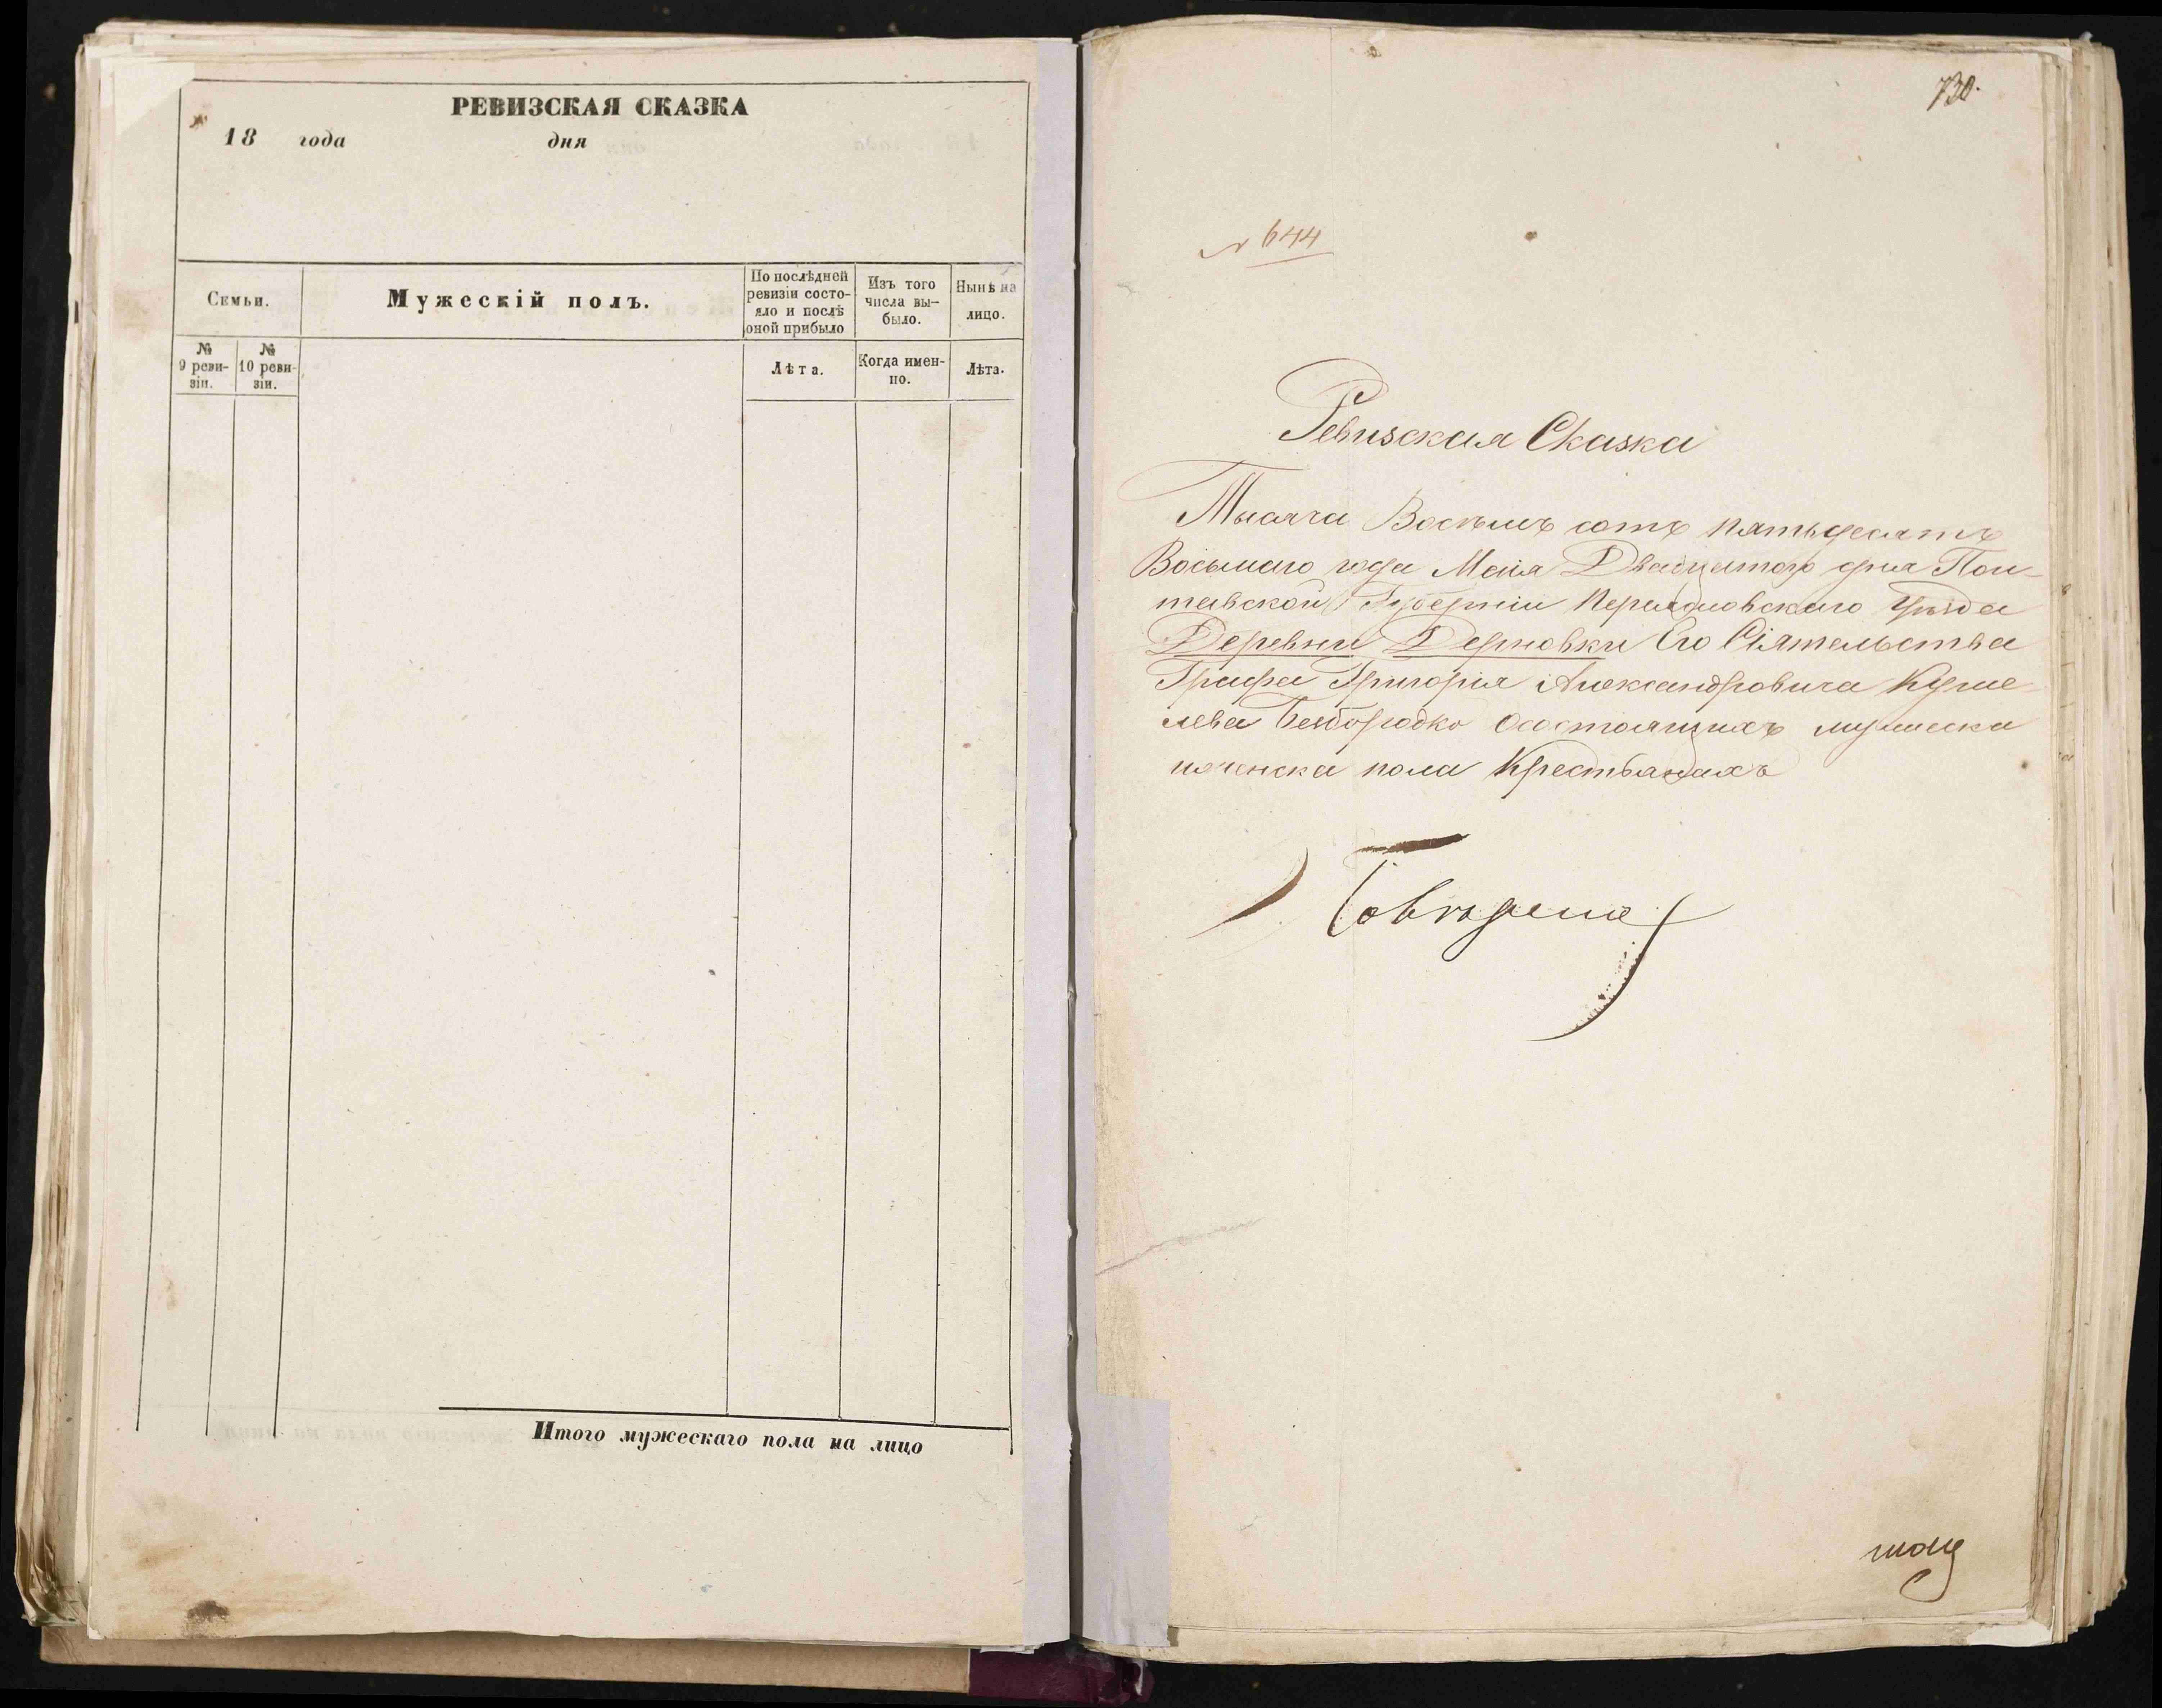 РЕВИЗСКАЯ СКАЗКА
18 года дня
Семьи.
Мужескій полъ.
По послѣдней
ревизіи состо-
яло и послѣ
оной прибыло
Изъ того
числа вы-
было.
Нынѣ на
лицо.
№
9 реви-
зіи.
№
10 реви-
зіи.
Лѣта.
Когда имен-
но.
Лѣта.
Итого мужескаго пола на лицо
730.
№ 644
Ревизская Сказка
Тысяча Восемъ сотъ пятьдесятъ
Восьмаго года Маія Двадцатого дня Пол-
тавской Губерніи Переяславскаго Уѣзда
Деревни Дерновки Его Сіятельства
Графа Григорія Александровича Куше-
лева Безбородко О состоящихъ мужеска
и женска пола Крестьянахъ